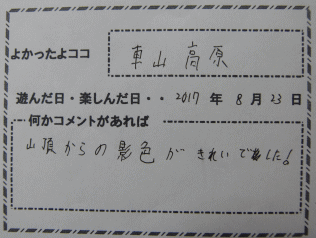 よかったよココ 車山高原
遊んだ日・楽しんだ日・・2017年8月23日
何かコメントがあれば
山頂からの影色がきれいでした!